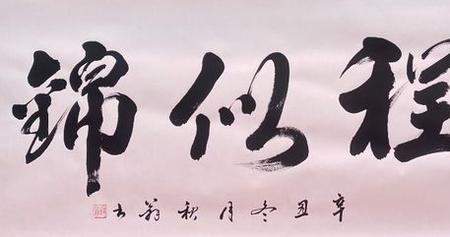 程似錦
辛丑冬月秋翁书